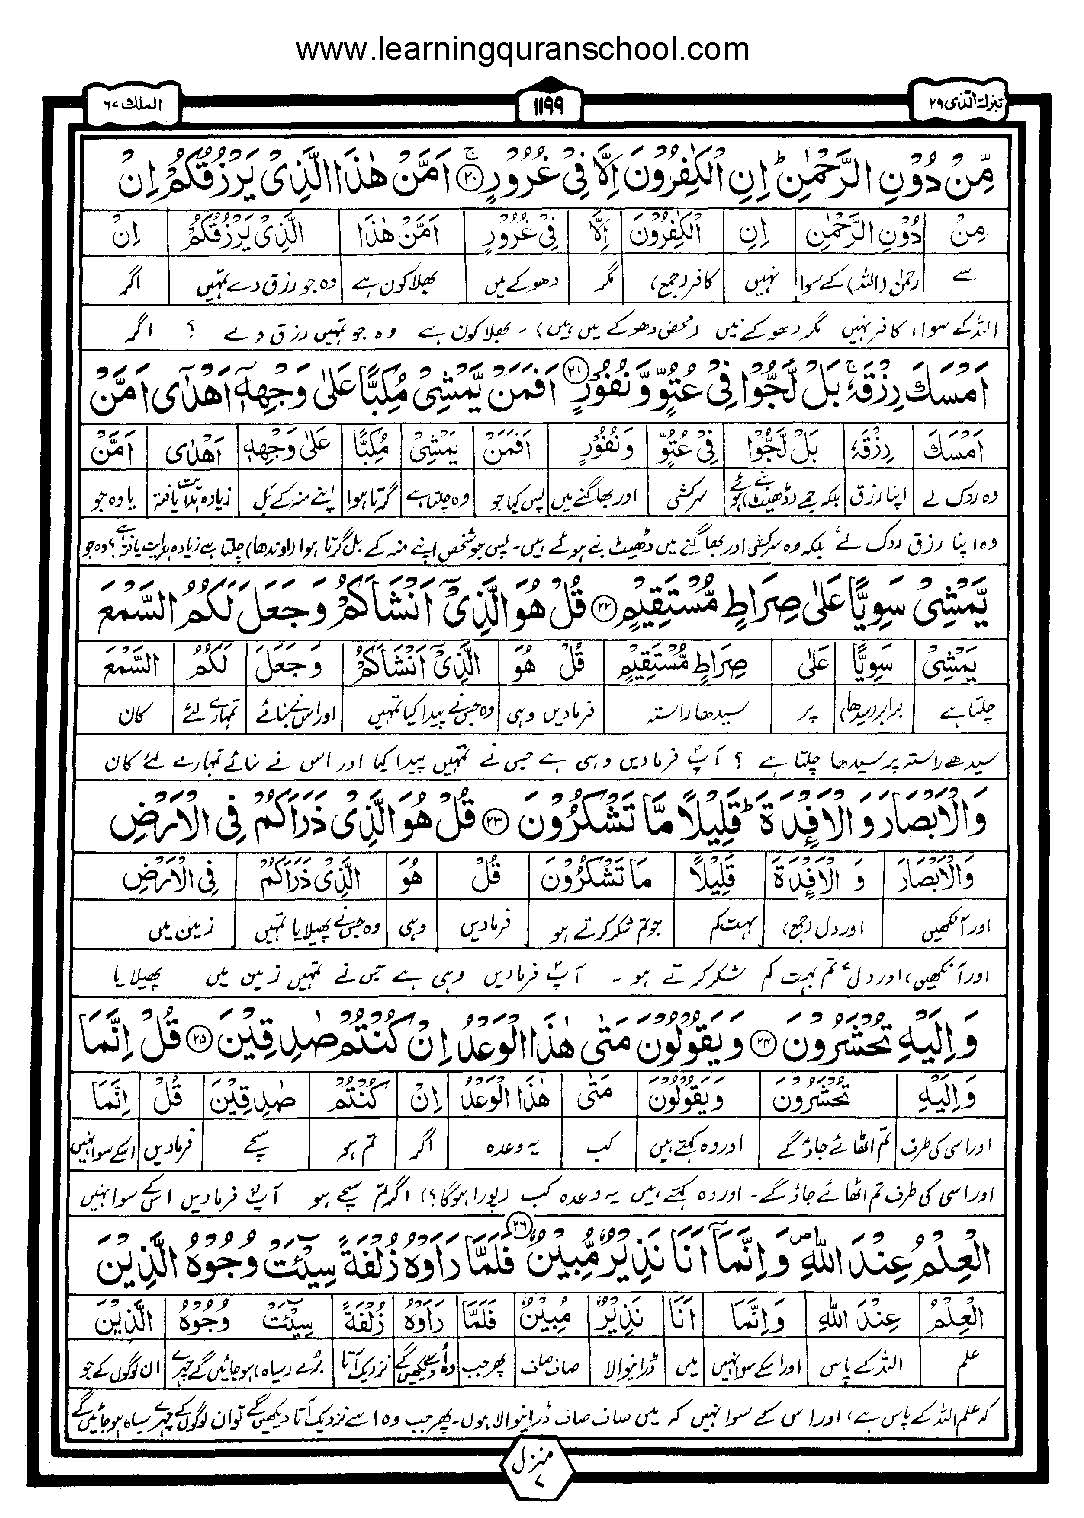 www.learningquranschool.com
تبٰرك الذی ۲۹
۱۱۹۹
الملك ۶۷
مِّنْ دُوْنِ الرَّحْمٰنِ ؕ اِنِ الْكٰفِرُوْنَ اِلَّا فِیْ غُرُوْرٍ ۚ۲۰ اَمَّنْ هٰذَا الَّذِیْ یَرْزُقُكُمْ اِنْ
مِنْ دُوْنِ الرَّحْمٰنِ اِنِ الْكٰفِرُوْنَ اِلَّا فِیْ غُرُوْرٍ اَمَّنْ هٰذَا الَّذِیْ یَرْزُقُكُمْ اِنْ
سے رحمٰن (اللہ) کے سوا نہیں کافر (جمع) مگر دھوکے میں بھلا کون ہے وہ جو رزق دے تمہیں اگر
اللہ کے سوا، کافر نہیں مگر دھوکے میں (محض دھوکے میں ہیں) ۔ بھلا کون ہے وہ جو تمہیں رزق دے ؟ اگر
اَمْسَكَ رِزْقَهٗ ۚ بَلْ لَّجُّوْا فِیْ عُتُوٍّ وَّ نُفُوْرٍ ۲۱ اَفَمَنْ یَّمْشِیْ مُكِبًّا عَلٰی وَجْهِهٖۤ اَهْدٰۤی اَمَّنْ
اَمْسَكَ رِزْقَهٗ بَلْ لَّجُّوْا فِیْ عُتُوٍّ وَنُفُوْرٍ اَفَمَنْ یَمْشِیْ مُكِبًّا عَلٰی وَجْهِهٖ اَهْدٰی اَمَّنْ
وہ روک لے اپنا رزق بلکہ جمے (ڈھیٹ بنے) ہوئے سرکشی اور بھاگنے میں پس کیا جو وہ چلتا ہے گرتا ہوا اپنے منہ کے بل زیادہ ہدایت یافتہ یا وہ جو
وہ اپنا رزق روک لے ؟ بلکہ وہ سرکشی اور بھاگنے میں ڈھیٹ بنے ہوئے ہیں۔ پس جو شخص اپنے منہ کے بل گرتا ہوا (اوندھا) چلتا ہے زیادہ ہدایت یافتہ ہے؟ یا وہ جو
یَّمْشِیْ سَوِیًّا عَلٰی صِرَاطٍ مُّسْتَقِیْمٍ ۲۲ قُلْ هُوَ الَّذِیْۤ اَنْشَاَكُمْ وَ جَعَلَ لَكُمُ السَّمْعَ
یَمْشِیْ سَوِیًّا عَلٰی صِرَاطٍ مُّسْتَقِیْمٍ قُلْ هُوَ الَّذِیْۤ اَنْشَاَكُمْ وَ جَعَلَ لَكُمُ السَّمْعَ
چلتا ہے برابر (سیدھا) پر سیدھا راستہ فرمادیں وہی وہ جس نے پیدا کیا تمہیں اور اس نے بنائے تمہارے لئے کان
سیدھے راستہ پر سیدھا چلتا ہے ؟ آپؐ فرمادیں وہی ہے جس نے تمہیں پیدا کیا اور اس نے بنائے تمہارے لئے کان
وَ الْاَبْصَارَ وَ الْاَفْـِٕدَةَ ؕ قَلِیْلًا مَّا تَشْكُرُوْنَ ۲۳ قُلْ هُوَ الَّذِیْ ذَرَاَكُمْ فِی الْاَرْضِ
وَالْاَبْصَارَ وَ الْاَفْـِٕدَةَ قَلِیْلًا مَا تَشْكُرُوْنَ قُلْ هُوَ الَّذِیْ ذَرَاَكُمْ فِی الْاَرْضِ
اور آنکھیں اور دل (جمع) بہت کم جو تم شکر کرتے ہو فرمادیں وہی وہ جس نے پھیلایا تمہیں زمین میں
اور آنکھیں، اور دل، تم بہت کم شکر کرتے ہو ۔ آپؐ فرمادیں وہی ہے جس نے تمہیں زمین میں پھیلایا
وَ اِلَیْهِ تُحْشَرُوْنَ ۲۴ وَ یَقُوْلُوْنَ مَتٰی هٰذَا الْوَعْدُ اِنْ كُنْتُمْ صٰدِقِیْنَ ۲۵ قُلْ اِنَّمَا
وَ اِلَیْهِ تُحْشَرُوْنَ وَیَقُوْلُوْنَ مَتٰی هٰذَا الْوَعْدُ اِنْ كُنْتُمْ صٰدِقِیْنَ قُلْ اِنَّمَا
اور اسی کی طرف تم اٹھائے جاؤ گے اور وہ کہتے ہیں کب یہ وعدہ اگر تم ہو سچے فرمادیں اسکے سوا نہیں
اور اسی کی طرف تم اٹھائے جاؤ گے۔ اور وہ کہتے ہیں یہ وعدہ کب (پورا ہوگا؟) اگر تم سچے ہو آپؐ فرمادیں اس کے سوا نہیں
الْعِلْمُ عِنْدَ اللّٰهِ ۪ وَ اِنَّمَاۤ اَنَا نَذِیْرٌ مُّبِیْنٌ ۲۶ فَلَمَّا رَاَوْهُ زُلْفَةً سِیْٓـَٔتْ وُجُوْهُ الَّذِیْنَ
الْعِلْمُ عِنْدَ اللّٰهِ وَ اِنَّمَا اَنَا نَذِیْرٌ مُبِیْنٌ فَلَمَّا رَاَوْهُ زُلْفَةً سِیْٓـَٔتْ وُجُوْهُ الَّذِیْنَ
علم اللہ کے پاس اور اسکے سوا نہیں میں ڈرانیوالا صاف صاف پھر جب وہ اُسے دیکھیں گے نزدیک آتا بُرے (سیاہ) ہو جائیں گے چہرے ان لوگوں کے جو
کہ علم اللہ کے پاس ہے، اور اس کے سوا نہیں کہ میں صاف صاف ڈرانیوالا ہوں۔ پھر جب وہ اسے نزدیک آتا دیکھیں گے تو ان لوگوں کے چہرے سیاہ ہو جائیں گے
منزل ۷